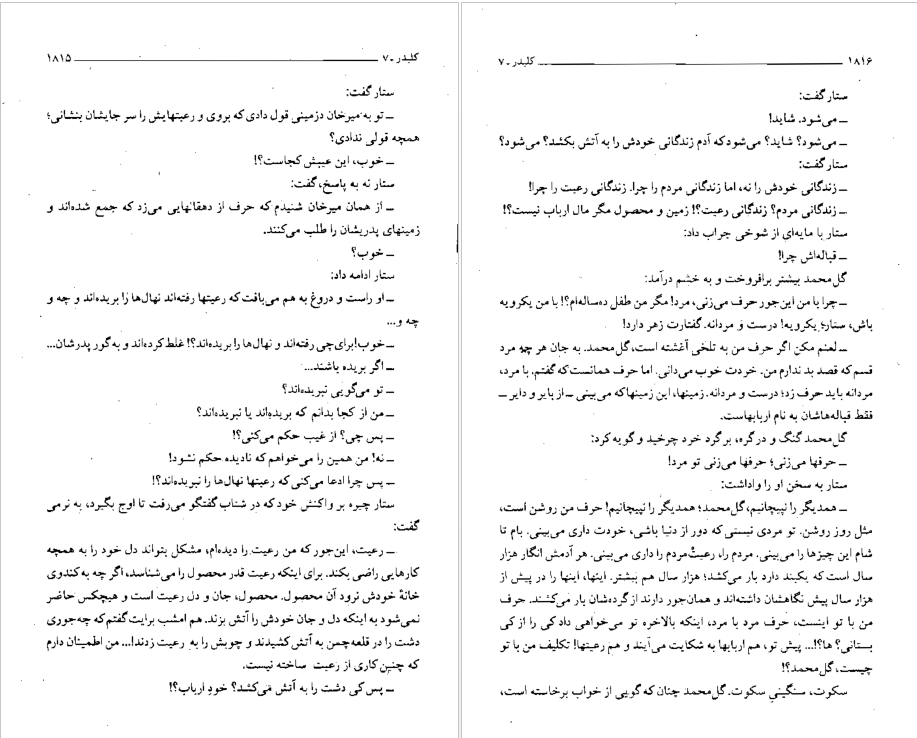 کلیدر ـ ۷ ــــــ ۱۸۱۵
ستار گفت:
ــ تو به میرخان دزمینی قول دادی که بروی و رعیتهایش را سر جایشان بنشانی؛
همچه قولی ندادی؟
ــ خوب، این عیبش کجاست؟!
ستار نه به پاسخ، گفت:
ــ از همان میرخان شنیدم که حرف از دهقانهایی می‌زد که جمع شده‌اند و
زمینهای پدریشان را طلب می‌کنند.
ــ خوب؟
ستار ادامه داد:
ــ او راست و دروغ به هم می‌بافت که رعیتها رفته‌اند نهال‌ها را بریده‌اند و چه و
چه و...
ــ خوب! برای چی رفته‌اند و نهال‌ها را بریده‌اند؟! غلط کرده‌اند و به گور پدرشان...
ــ اگر بریده باشند...
ــ تو می‌گویی نبریده‌اند؟
ــ من از کجا بدانم که بریده‌اند یا نبریده‌اند؟
ــ پس چی؟ از غیب حکم می‌کنی؟!
ــ نه! من همین را می‌خواهم که نادیده حکم نشود!
ــ پس چرا ادعا می‌کنی که رعیتها نهال‌ها را نبریده‌اند؟!
ستار چیره بر واکنش خود که در شتاب گفتگو می‌رفت تا اوج بگیرد، به نرمی
گفت:
ــ رعیت، این‌جور که من رعیت را دیده‌ام، مشکل بتواند دل خود را به همچه
کارهایی راضی بکند. برای اینکه رعیت قدر محصول را می‌شناسد، اگر چه به کندوی
خانهٔ خودش نرود آن محصول. محصول، جان و دل رعیت است و هیچکس حاضر
نمی‌شود به اینکه دل و جان خودش را آتش بزند. هم امشب برایت گفتم که چه‌جوری
دشت را در قلعه‌چمن به آتش کشیدند و چوبش را به رعیت زدند!... من اطمینان دارم
که چنین کاری از رعیت ساخته نیست.
ــ پس کی دشت را به آتش می‌کشد؟ خودِ ارباب؟!
۱۸۱۶ ــــــ کلیدر ـ ۷
ستار گفت:
ــ می‌شود. شاید!
ــ می‌شود؟ شاید؟ می‌شود که آدم زندگانی خودش را به آتش بکشد؟ می‌شود؟
ستار گفت:
ــ زندگانی خودش را نه، اما زندگانی مردم را چرا. زندگانی رعیت را چرا!
ــ زندگانی مردم؟ زندگانی رعیت؟! زمین و محصول مگر مال ارباب نیست؟!
ستار با مایه‌ای از شوخی جواب داد:
ــ قباله‌اش چرا!
گل‌محمد بیشتر برافروخت و به خشم درآمد:
ــ چرا با من این‌جور حرف می‌زنی، مرد! مگر من طفل ده‌ساله‌ام؟! با من یکرویه
باش، ستار؛ یکرویه! درست و مردانه. گفتارت زهر دارد!
ــ لعنم مکن اگر حرف من به تلخی آغشته است، گل‌محمد. به جان هر چه مرد
قسم که قصد بد ندارم من. خودت خوب می‌دانی. اما حرف همانست که گفتم. با مرد،
مردانه باید حرف زد؛ درست و مردانه. زمینها، این زمینها که می‌بینی ــ از بایر و دایر ــ
فقط قباله‌هاشان به نام اربابهاست.
گل‌محمد گنگ و درگره، بر گرد خود چرخید و گویه کرد:
ــ حرفها می‌زنی؛ حرفها می‌زنی تو مرد!
ستار به سخن او را واداشت:
ــ همدیگر را نپیچانیم، گل‌محمد؛ همدیگر را نپیچانیم! حرف من روشن است،
مثل روز روشن. تو مردی نیستی که دور از دنیا باشی، خودت داری می‌بینی. بام تا
شام این چیزها را می‌بینی. مردم را، رعیتْ مردم را داری می‌بینی. هر آدمش انگار هزار
سال است که یکبند دارد بار می‌کشد؛ هزار سال هم بیشتر. اینها، اینها را در پیش از
هزار سال پیش نگاهشان داشته‌اند و همان‌جور دارند از گرده‌شان بار می‌کشند. حرف
من با تو اینست، حرف مرد با مرد، اینکه بالاخره تو می‌خواهی داد کی را از کی
بستانی؟ ها؟!... پیش تو، هم اربابها به شکایت می‌آیند و هم رعیتها! تکلیف من با تو
چیست، گل‌محمد؟!
سکوت، سنگینیِ سکوت. گل‌محمد چنان که گویی از خواب برخاسته است،